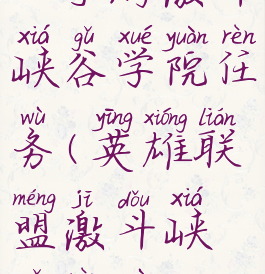 xiá gǔ xué yuàn rèn
峡谷学院任
wù yīng xióng lián
务(英雄联
méng jī dǒu xiá
盟激斗峡